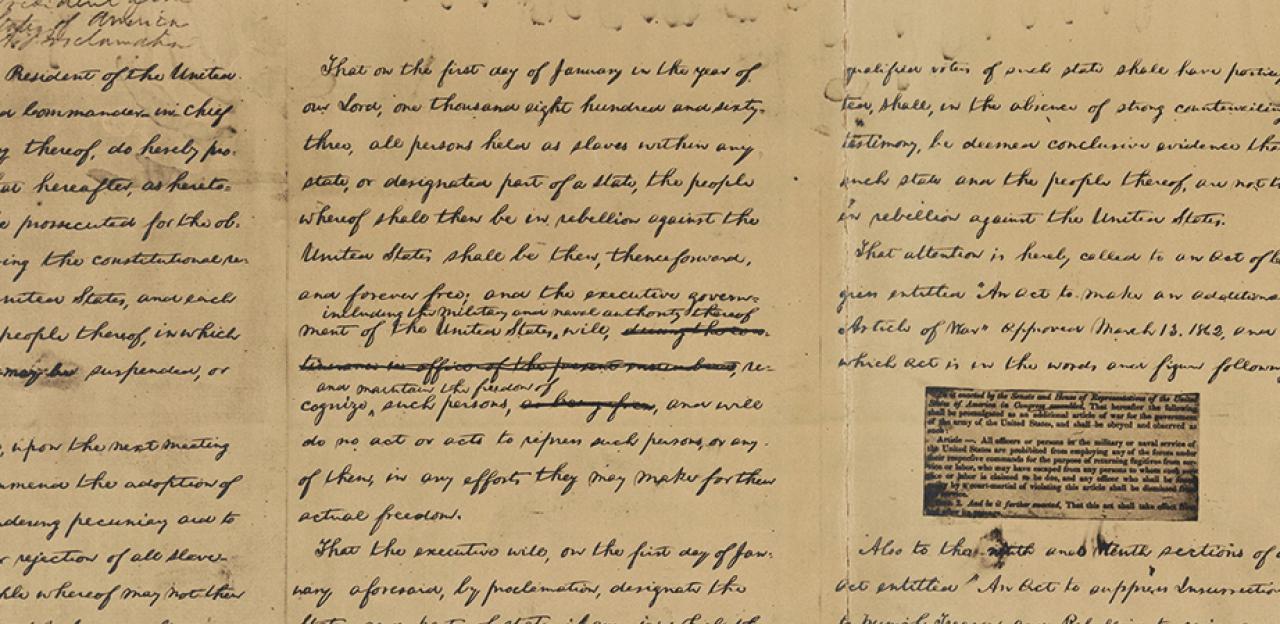 States of America
President of the United
Commander-in-Chief
thereof, do hereby pro-
hereafter, as hereto-
prosecuted for the ob-
the constitutional re-
United States, and each
people thereof, in which
may be suspended, or
upon the next meeting
the adoption of
pecuniary aid to
rejection of all slave-
whereof may not then
That on the first day of January in the year of
our Lord, one thousand eight hundred and sixty-
three, all persons held as slaves within any
state, or designated part of a state, the people
whereof shall then be in rebellion against the
United States shall be then, thenceforward,
and forever free; and the executive govern-
including the military and naval authority thereof
ment of the United States, will, during the con-
tinuance in office of the present incumbents, re-
and maintain the freedom of
cognize, such persons, as being free, and will
do no act or acts to repress such persons, or any
of them, in any efforts they may make for their
actual freedom.
That the executive will, on the first day of Jan-
uary aforesaid, by proclamation, designate the
qualified voters of such state shall have
shall, in the absence of strong
testimony, be deemed conclusive evidence
such state and the people thereof, are not
in rebellion against the United States.
That attention is hereby called to an act of
entitled "An act to make an additional
Article of War" approved March 13, 1862, and
which act is in the words and figure following
enacted by the Senate and House of Representatives of the United
States of America in Congress assembled, That hereafter the following
shall be promulgated as an additional article of war for the government
of the army of the United States, and shall be obeyed and observed as
Article —. All officers or persons in the military or naval service of
the United States are prohibited from employing any of the forces under
their respective commands for the purpose of returning fugitives from
or labor, who may have escaped from any persons to whom such
or labor is claimed to be due, and any officer who shall be found
by a court-martial of violating this article shall be dismissed from
service.
2. And be it further enacted, That this act shall take effect from
Also to the ninth and tenth sections of
act entitled "An Act to suppress Insurrection